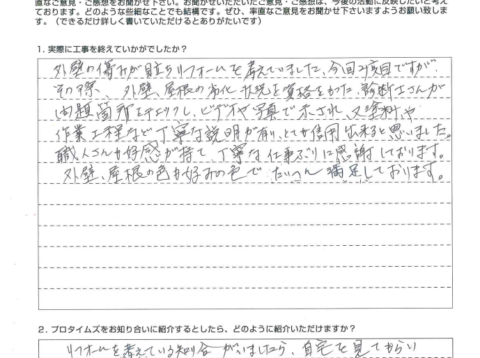 直なご意見・ご感想をお聞かせ下さい。お聞かせいただいたご意見・ご感想は、今後の活動に反映したいと考え
ております。どのような些細なことでも結構です。ぜひ、率直なご意見をお聞かせ下さいますようお願い致しま
す。（できるだけ詳しく書いていただけるとありがたいです）
1. 実際に工事を終えていかがでしたか？
外壁の傷みが目立ちリフォームを考えていました、今回2度目ですが
その際、外壁、屋根の劣化状況を資格をもった診断士さんが
問題箇所をチェックし、ビデオや写真で示され、又塗料や
作業工程など丁寧な説明が有り、とても信用出来ると思いました。
職人さんも好感が持て、丁寧な仕事ぶりに感謝しております。
外壁、屋根の色も好みの色で たいへん 満足しております。
2. プロタイムズをお知り合いに紹介するとしたら、どのように紹介いただけますか？
リフォームを考えている知り合いがいましたら、自宅を見てもらい